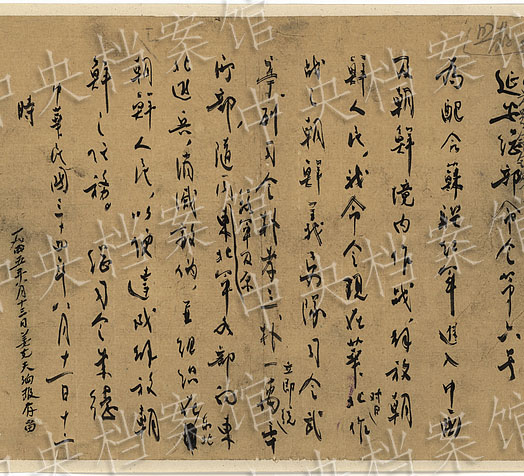 延安總部命令第六号
為配合蘇聯紅軍進入中國
及朝鮮境内作战,解放朝
鮮人民,我命令現在華北对日作
战之朝鮮義勇隊司令武
亭、副司令朴孝三、朴一禹立即统率
所部,隨同八路軍及原東北軍各部向東
北進兵,消滅敌偽,並組織在東北
朝鮮人民,以便達成解放朝
鮮之任務。 總司令朱德
中華民國三十四年八月十一日十二
時
一九四五年八月十三日
中央档案馆